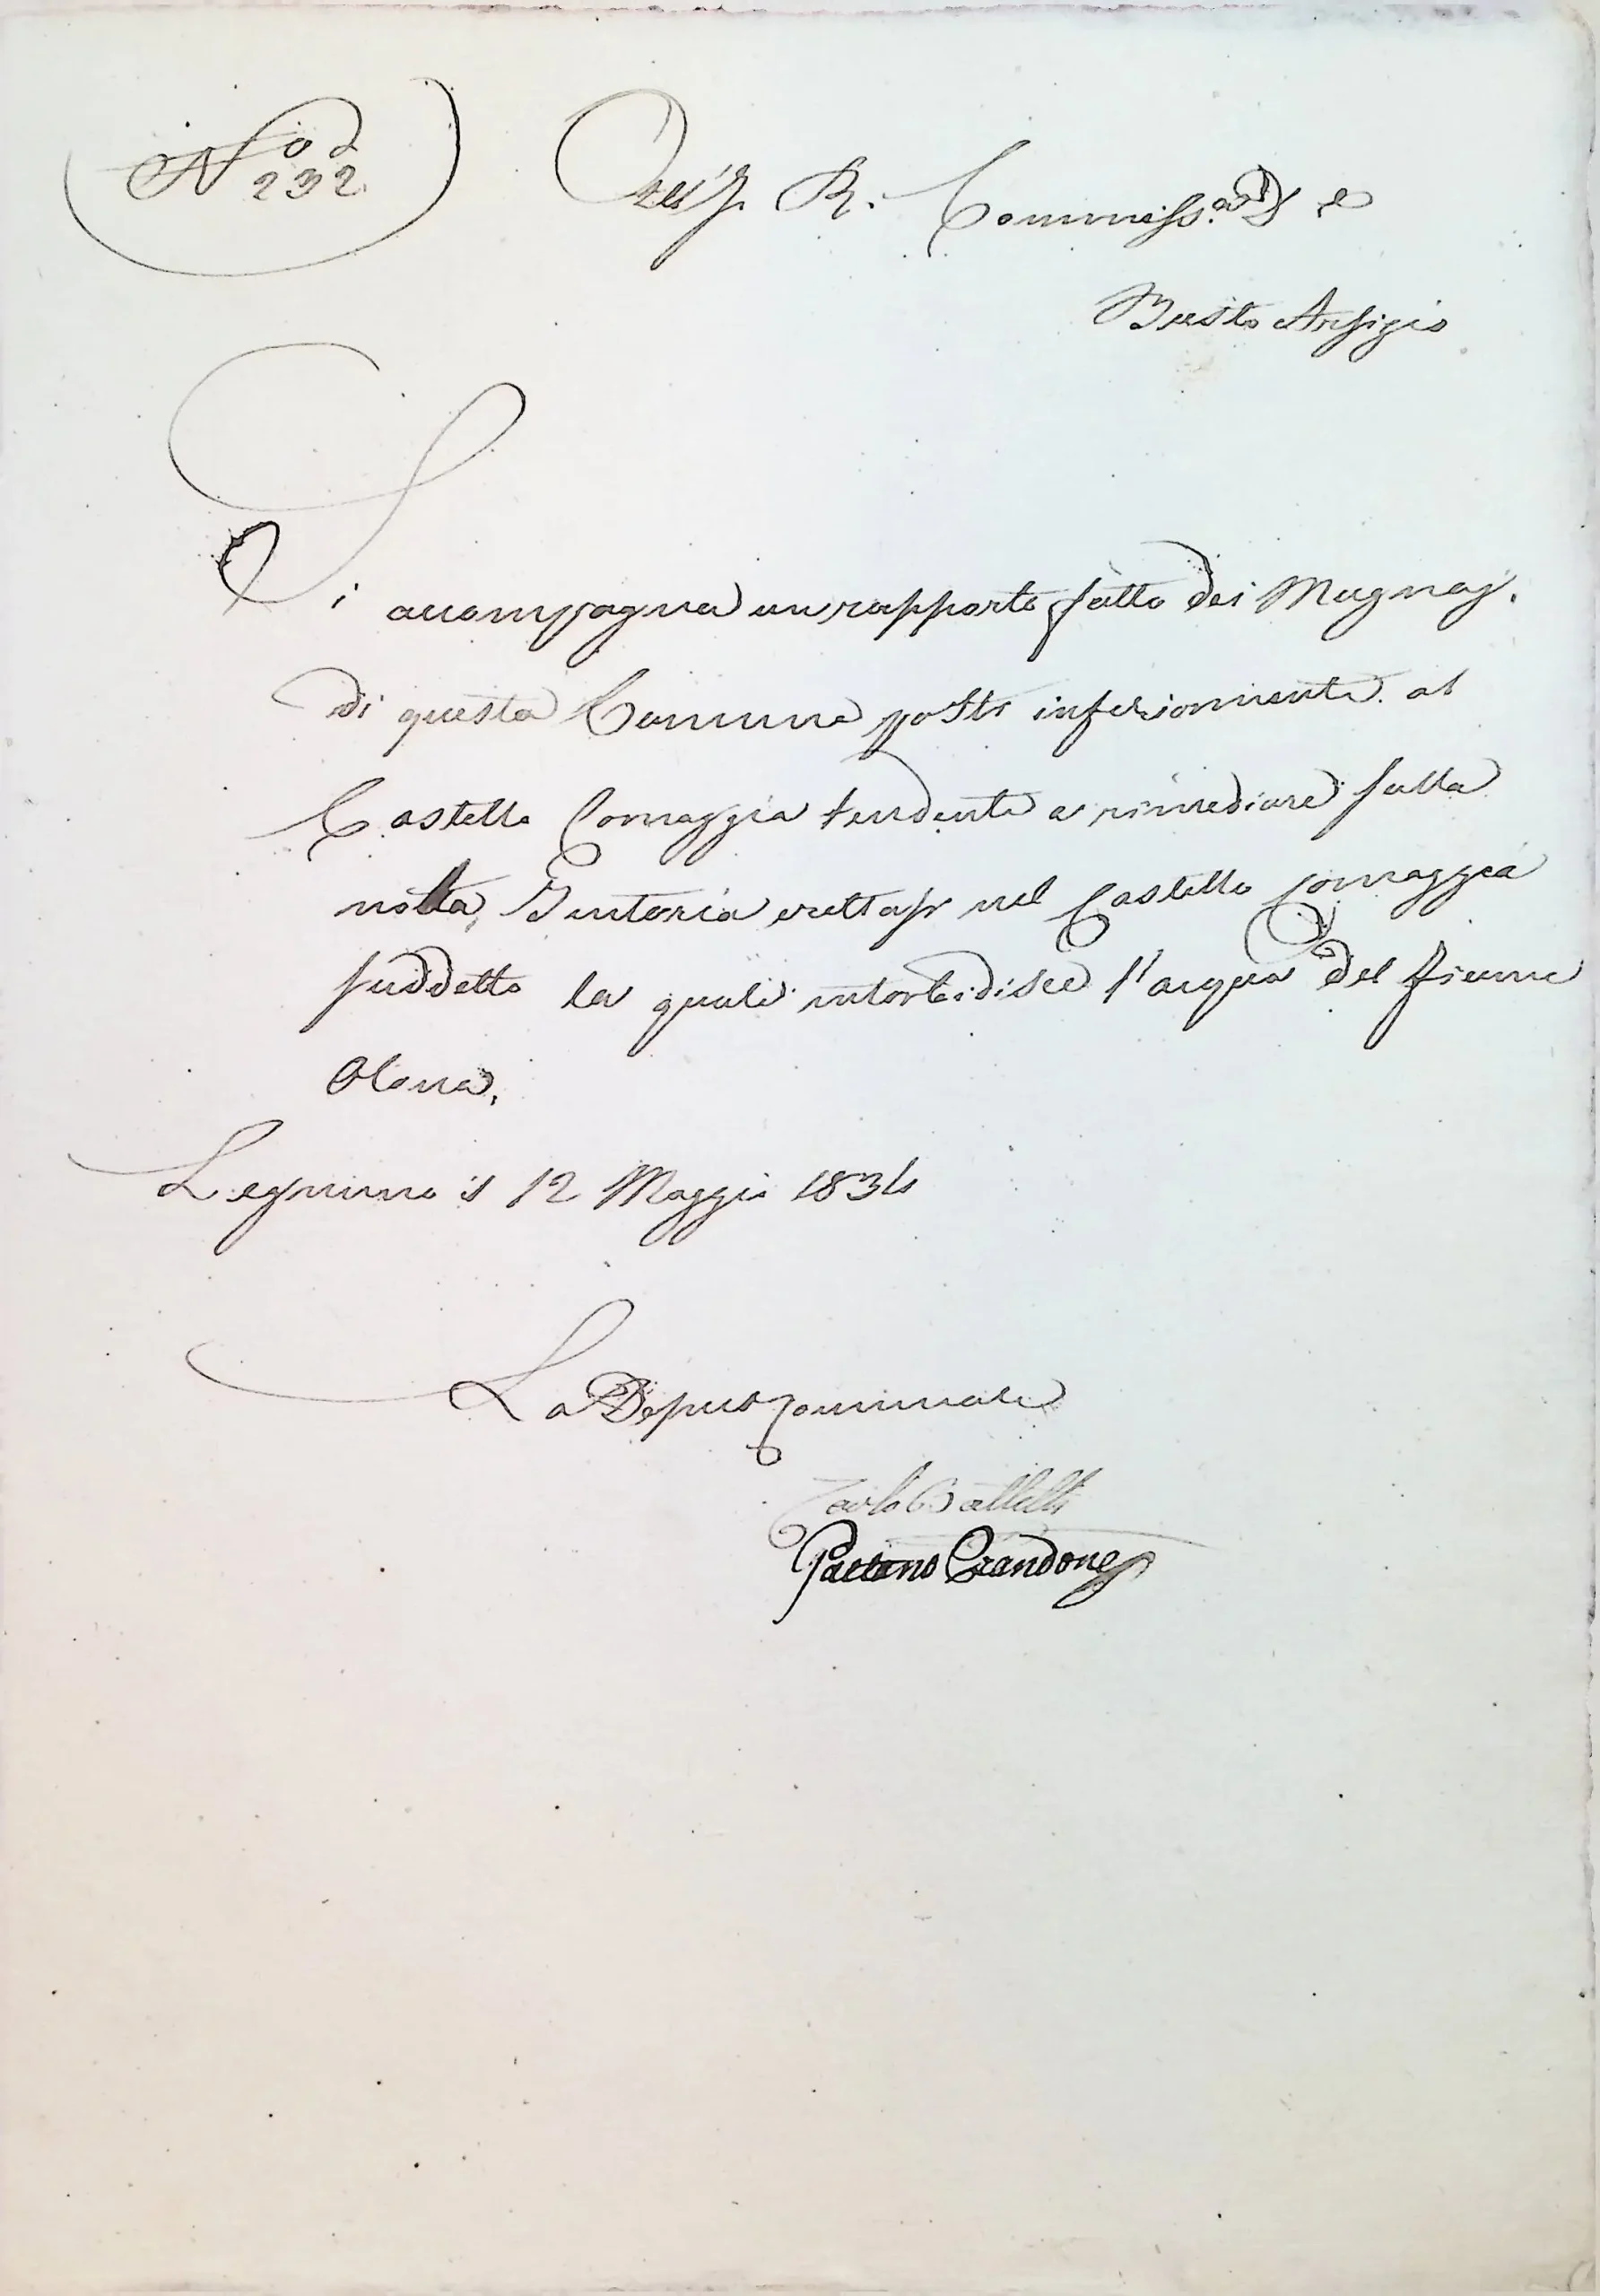 N.o d
232
All'I. R. Commiss.o D e
Busto Arsizio
Si accompagna un rapporto fatto dei Mugnaj.
di questa Comune posti inferiormente al
Castello Cornaggia tendente a rimediare sulla
nota, Tintoria erettasi nel Castello Cornaggia
suddetto la quale intorbidisce l'acqua del fiume
Olona.
Legnano il 12 Maggio 1834
La Deput Comunale
Carlo
Gaetano